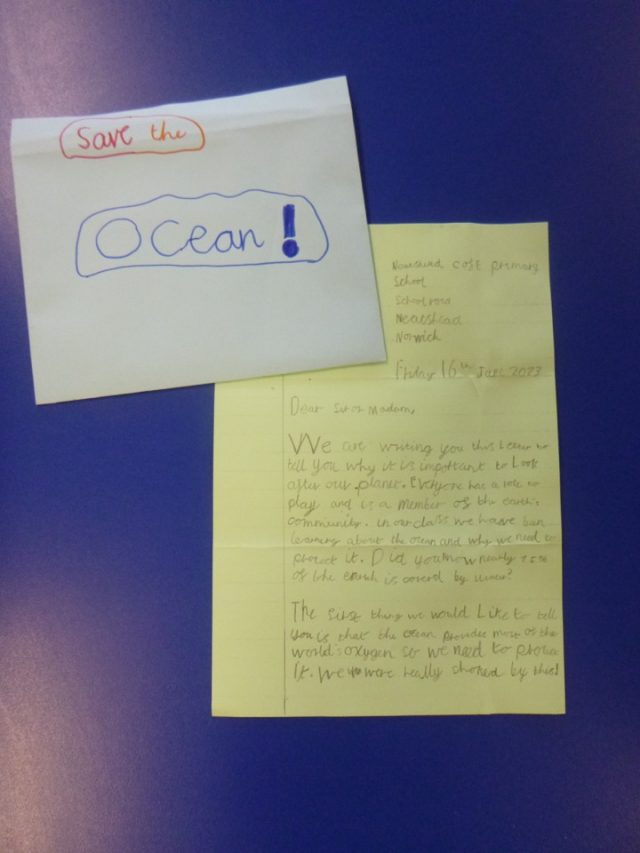 Save the
Ocean!
CofE primary
School
School road
Neatshead
Norwich
Friday 16th June 2023
Dear Sir or Madam,
We are writing you this letter to
tell you why it is important to Look
after our planet. Everyone has a role to
play and is a member of the earth's
community. in our class we have ben
learning about the ocean and why we need to
protect it. Did you know nearly 75%
of the earth is coverd by water?
The first thing we would Like to tell
you is that the ocean provides most of the
world's oxygen so we need to protect
It. We were really shoked by this!